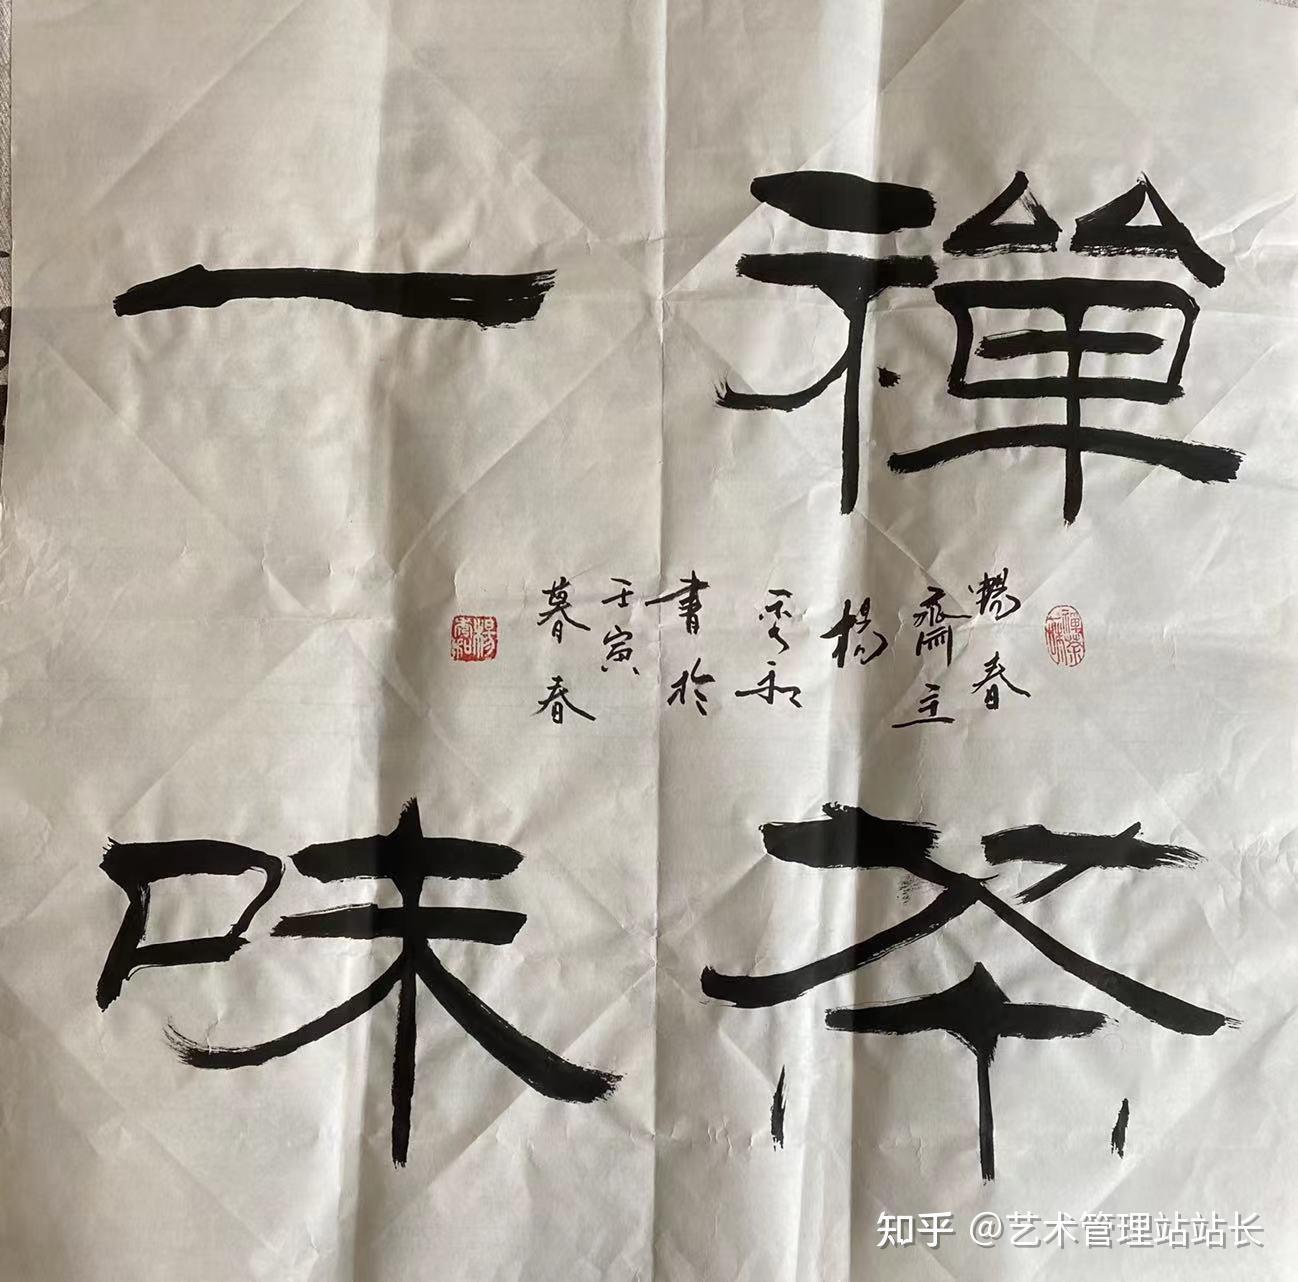 禪茶
一味
春
齋主
楊
書於
壬寅
暮春
知乎 @艺术管理站站长